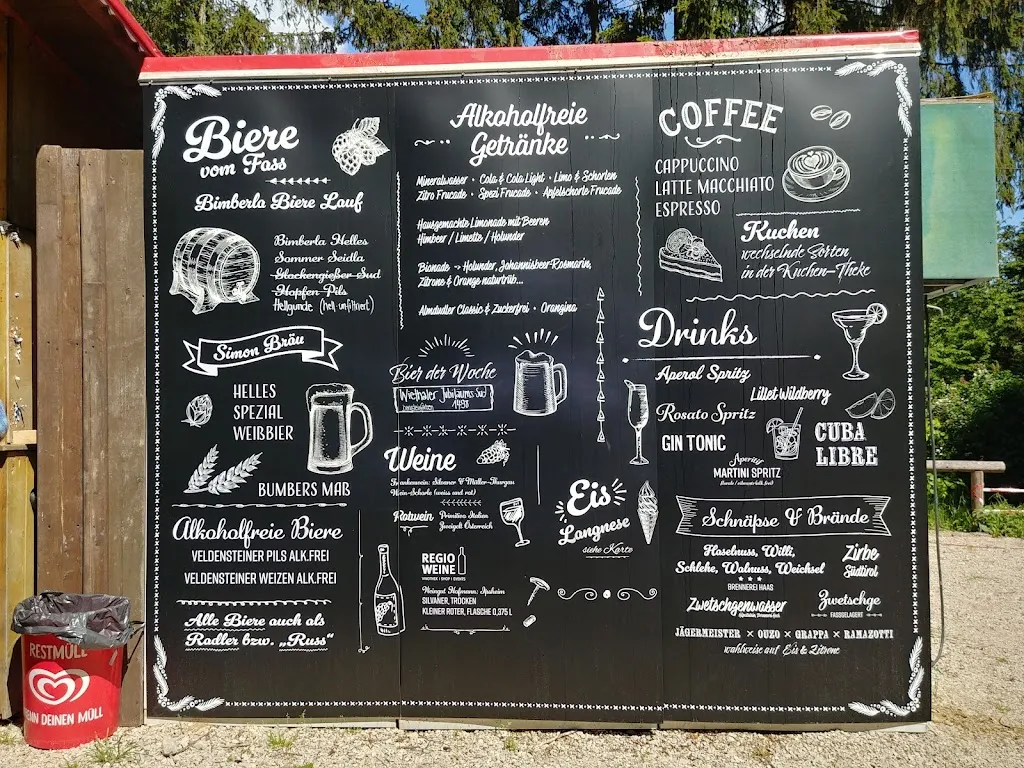 Biere
vom Fass
Bimberla Biere Lauf
Bimberla Helles
Sommer Seidla
Glockengießer Sud
Hopfen Pils
Hellgunde (hell-unfiltriert)
Simon Bräu
HELLES
SPEZIAL
WEIßBIER
BUMBERS MAß
Alkoholfreie Biere
VELDENSTEINER PILS ALK.FREI
VELDENSTEINER WEIZEN ALK.FREI
Alle Biere auch als
Radler bzw. „Russ“
Alkoholfreie
Getränke
Mineralwasser · Cola & Cola Light · Limo & Schorlen
Zitro Frucade · Spezi Frucade · Apfelschorle Frucade
Hausgemachte Limonade mit Beeren
Himbeer / Limette / Holunder
Bionade -> Holunder, Johannisbeer-Rosmarin,
Zitrone & Orange naturtrüb...
Almdudler Classic & Zuckerfrei · Orangina
Bier der Woche
Wiethaler Jubiläums Sud
1498
Weine
Frankenwein: Silvaner & Müller-Thurgau
Wein-Schorle (weiss und rot)
Rotwein
Primitivo Italien
Zweigelt Österreich
REGIO
WEINE
VINOTHEK | SHOP | EVENTS
Weingut Hofmann; Ipsheim
SILVANER, TROCKEN
KLEINER ROTER, FLASCHE 0,375 L
Eis
Langnese
siehe Karte
COFFEE
CAPPUCCINO
LATTE MACCHIATO
ESPRESSO
Kuchen
wechselnde Sorten
in der Kuchen-Theke
Drinks
Aperol Spritz
Lillet Wildberry
Rosato Spritz
GIN TONIC
CUBA
LIBRE
Aperitif
MARTINI SPRITZ
Schnäpse & Brände
Haselnuss, Willi,
Schlehe, Walnuss, Weichsel
BRENNEREI HAAS
Zirbe
Südtirol
Zwetschgenwasser
Zwetschge
FASSGELAGERT
JÄGERMEISTER × OUZO × GRAPPA × RAMAZOTTI
wahlweise auf Eis & Zitrone
RESTMÜLL
DEINEN MÜLL